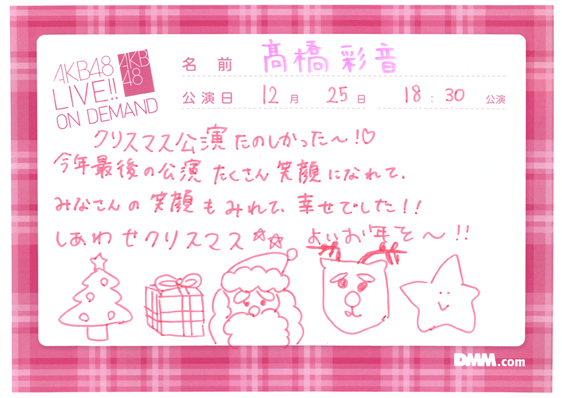 AKB48
LIVE!!
ON DEMAND
AKB
48
名前 髙橋彩音
公演日 12月 25日 18:30 公演
クリスマス公演たのしかった〜!♡
今年最後の公演 たくさん笑顔になれて、
みなさんの笑顔もみれて、幸せでした!!
しあわせクリスマス☆☆ よいお年を〜!!
DMM.com